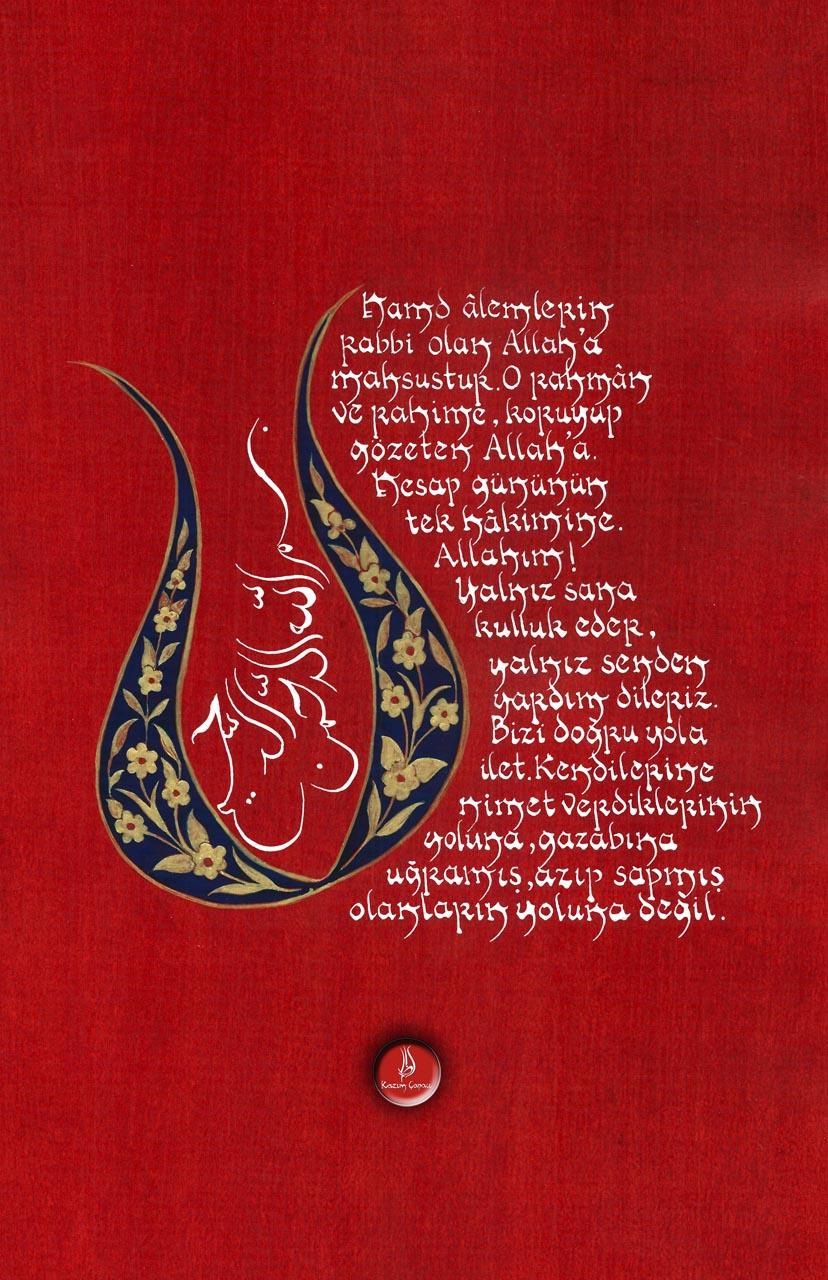 بسم الله الرحمن الرحيم
Hamd âlemlerin
rabbi olan Allah'a
mahsustur. O rahmân
ve rahime, koruyup
gözeten Allah'a.
Hesap gününün
tek hâkimine.
Allahım!
Yalnız sana
kulluk eder,
yalnız senden
yardım dileriz.
Bizi doğru yola
ilet. Kendilerine
nimet verdiklerinin
yoluna, gazâbına
uğramış, azıp sapmış
olanların yoluna değil.
Kazım